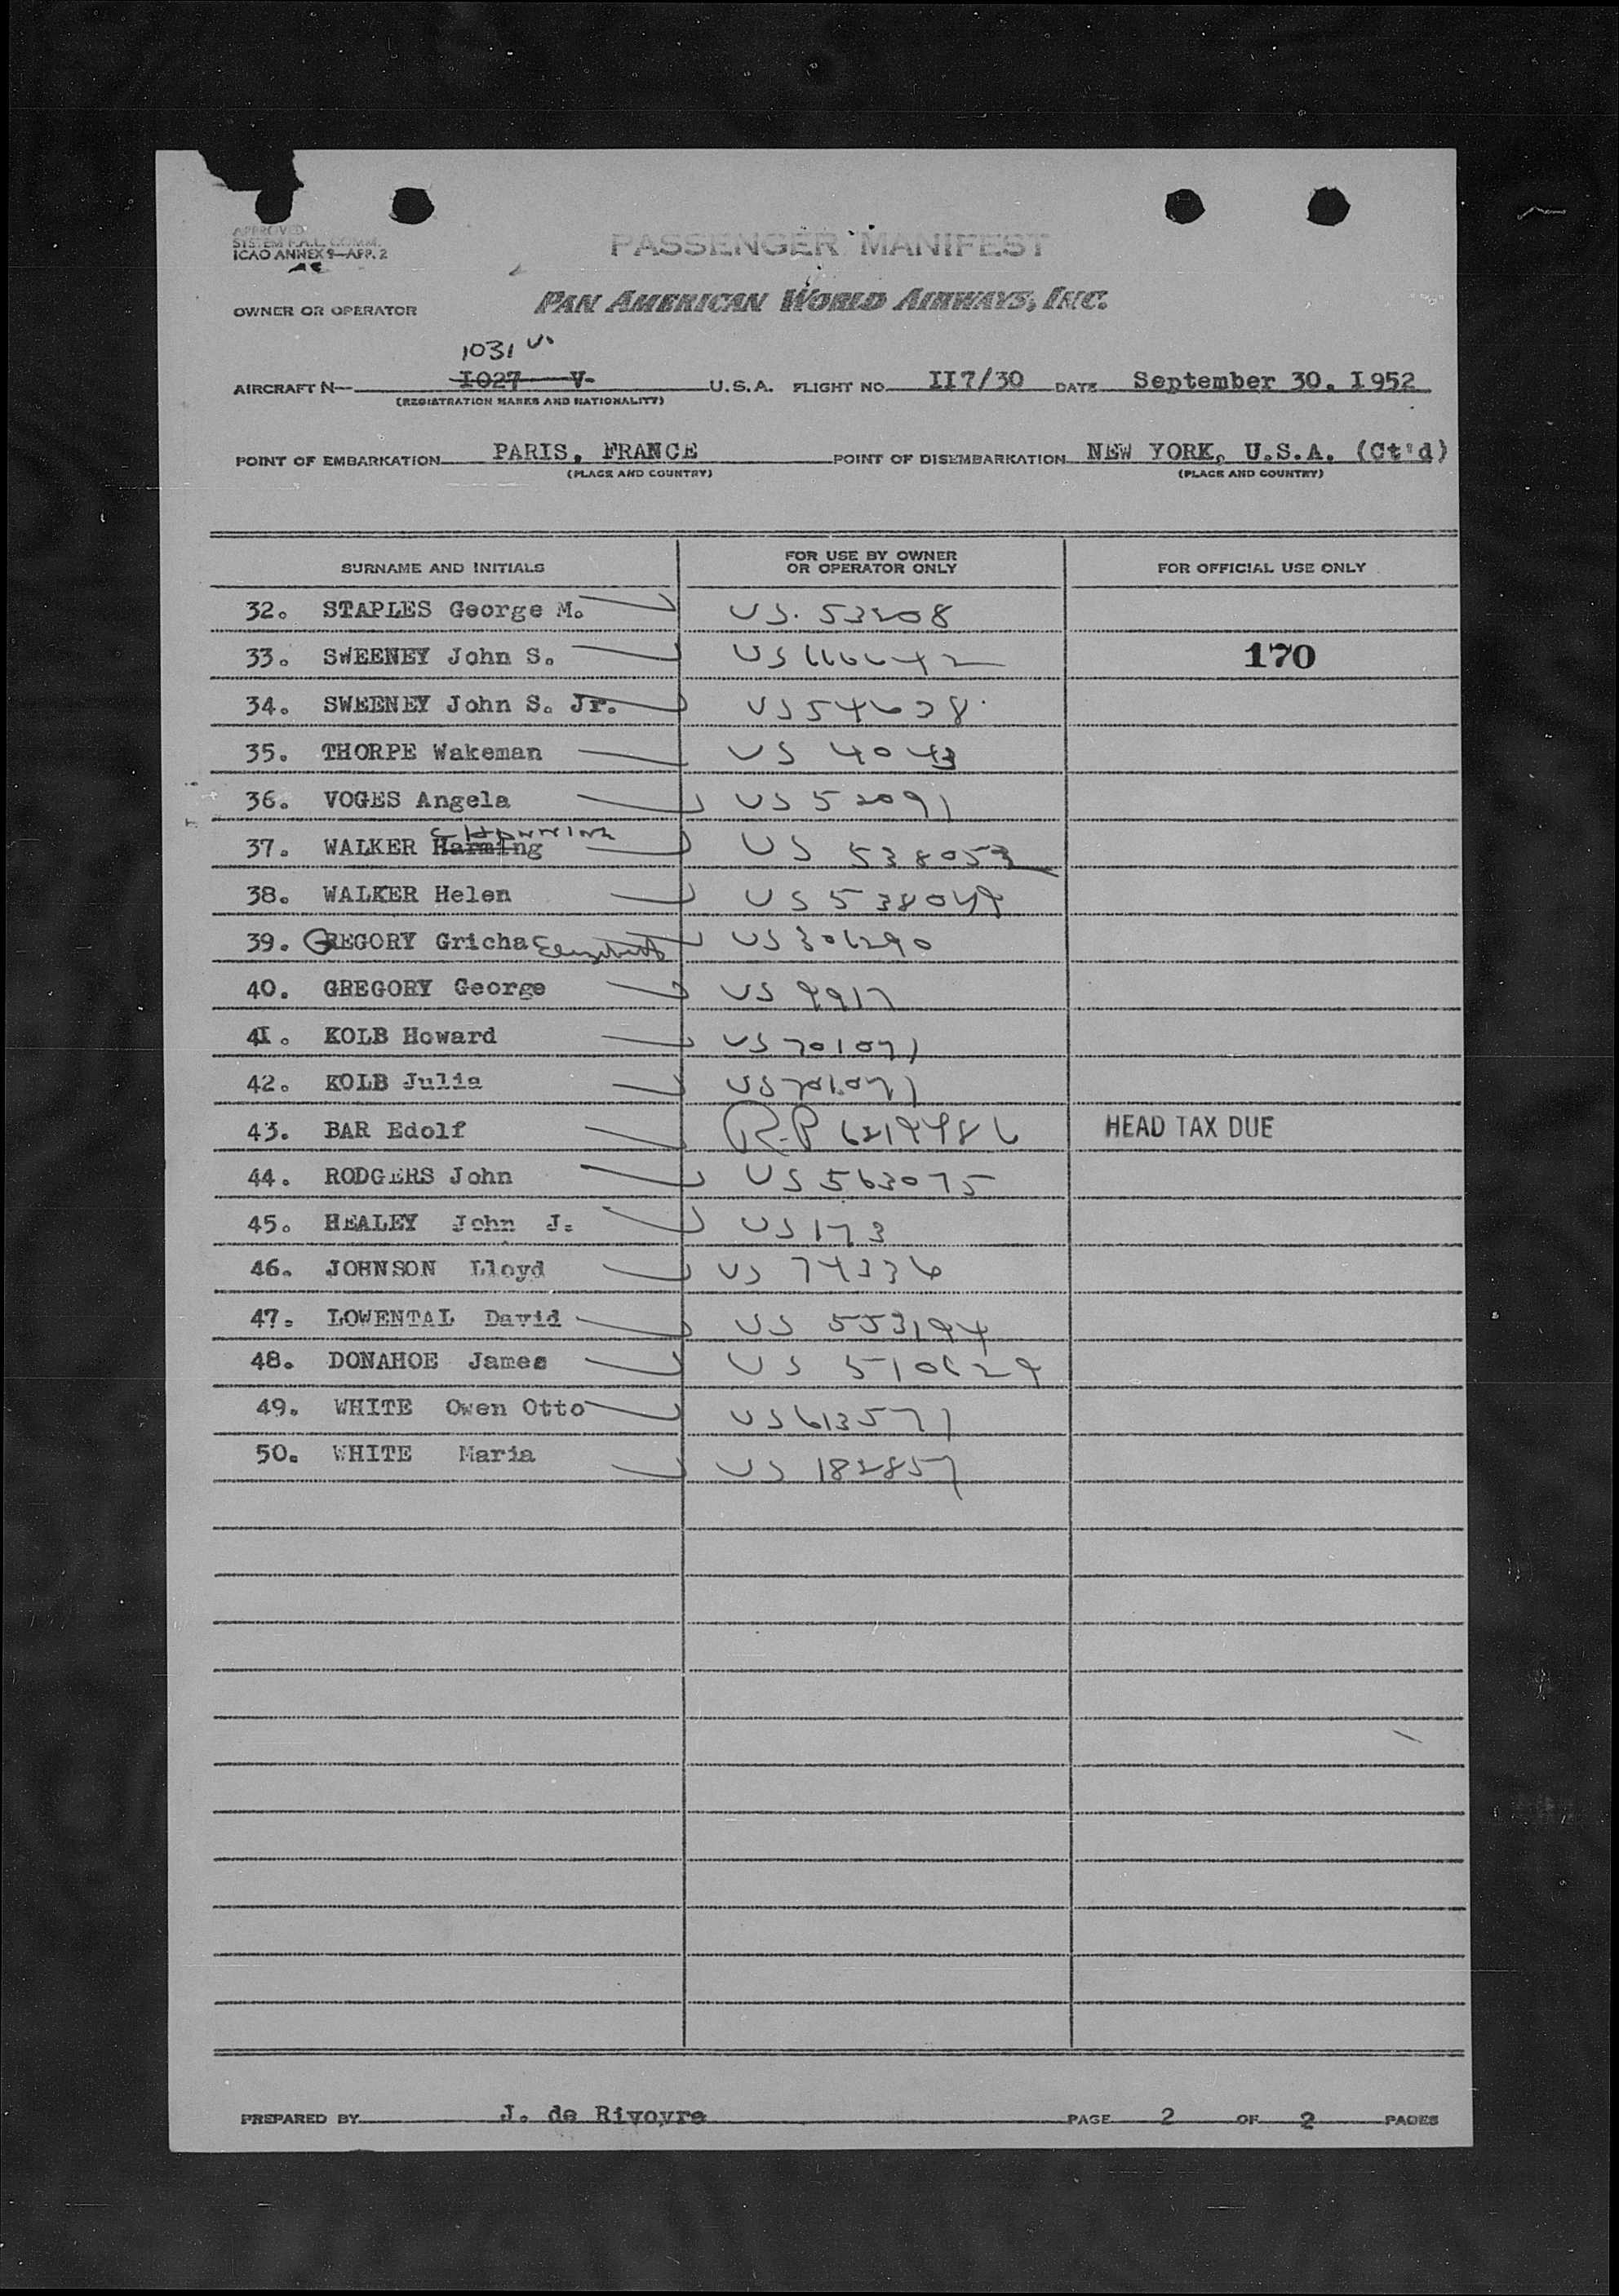 APPROVED
SYSTEM F.A.L. COMM.
ICAO ANNEX 9—APP. 2
PASSENGER MANIFEST
OWNER OR OPERATOR PAN AMERICAN WORLD AIRWAYS, INC.
1031 V.
AIRCRAFT N— I027 V- U.S.A. FLIGHT NO. II7/30 DATE September 30. I952
(REGISTRATION MARKS AND NATIONALITY)
POINT OF EMBARKATION PARIS, FRANCE POINT OF DISEMBARKATION NEW YORK, U.S.A. (Ct'd)
(PLACE AND COUNTRY) (PLACE AND COUNTRY)
SURNAME AND INITIALS FOR USE BY OWNER OR OPERATOR ONLY FOR OFFICIAL USE ONLY
32. STAPLES George M. US. 53208
33. SWEENEY John S. US 116642 170
34. SWEENEY John S. Jr. US 54628
35. THORPE Wakeman US 4043
36. VOGES Angela US 52091
37. WALKER Harming US 538053
38. WALKER Helen US 538049
39. GREGORY Gricha Elizabeth US 306290
40. GREGORY George US 9917
41. KOLB Howard US 701071
42. KOLB Julia US 701071
43. BAR Edolf R.P 6219986 HEAD TAX DUE
44. RODGERS John US 563075
45. HEALEY John J. US 173
46. JOHNSON Lloyd US 74336
47. LOWENTAL David US 553194
48. DONAHOE James US 510629
49. WHITE Owen Otto US 613571
50. WHITE Maria US 182857
PREPARED BY J. de Rivoyre PAGE 2 OF 2 PAGES